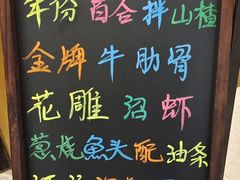 年份百合拌山楂
金牌牛肋骨
花雕沼虾
葱烧魚头配油条